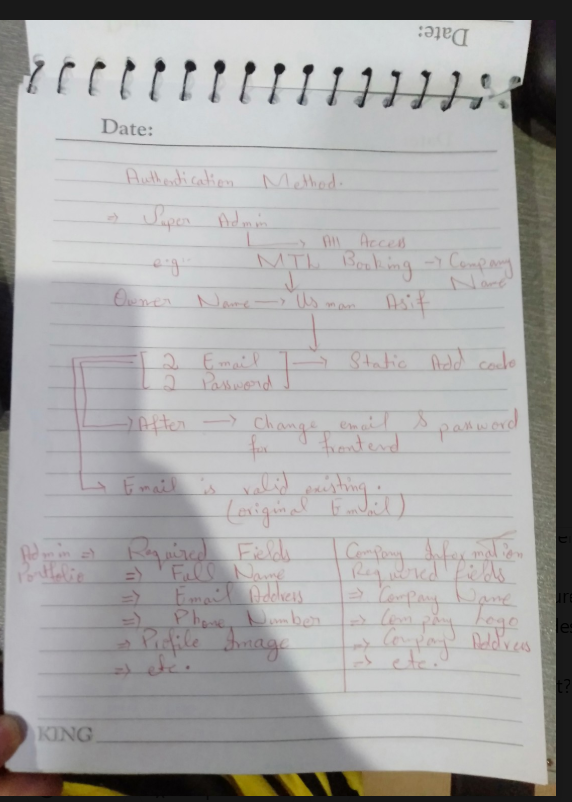 Date:
Date:
Authentication Method.
⇒ Super Admin
→ All Access
e.g. MTL Booking → Company
Name
Owner Name → Usman Asif
[ 2 Email ] → Static Add code
[ 2 Password ]
→ After → Change email & password
for frontend
→ Email is valid existing.
(original Email)
Admin ⇒ Required Fields
Portfolio ⇒ Full Name
⇒ Email Address
⇒ Phone Number
⇒ Profile Image
⇒ etc.
Company Information
Required fields
⇒ Company Name
⇒ Company Logo
⇒ Company Address
⇒ etc.
KING